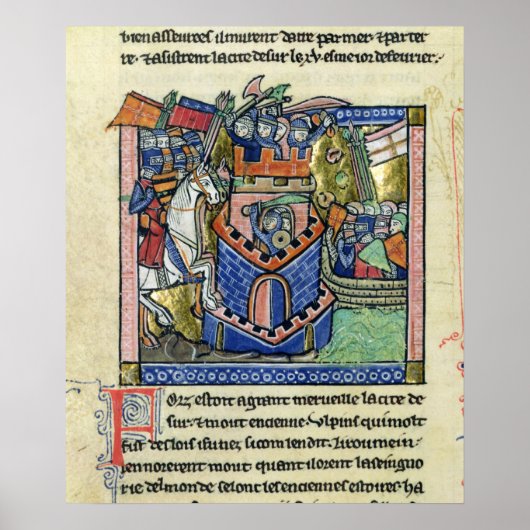 bien asseurees il murent datre par mer ⁊ par ter
re ⁊ asistrent la cite de sur le xv. esme ior de feurier.
Mlt estoit a grant merueille la cite de
sur ⁊ mout encienne. Vlpins qui molt
fist des lois i fu nez si com len dit. Li roumein
lennorerent mout quant il orent la seingno
rie del monde selont les enciennes estoires ha